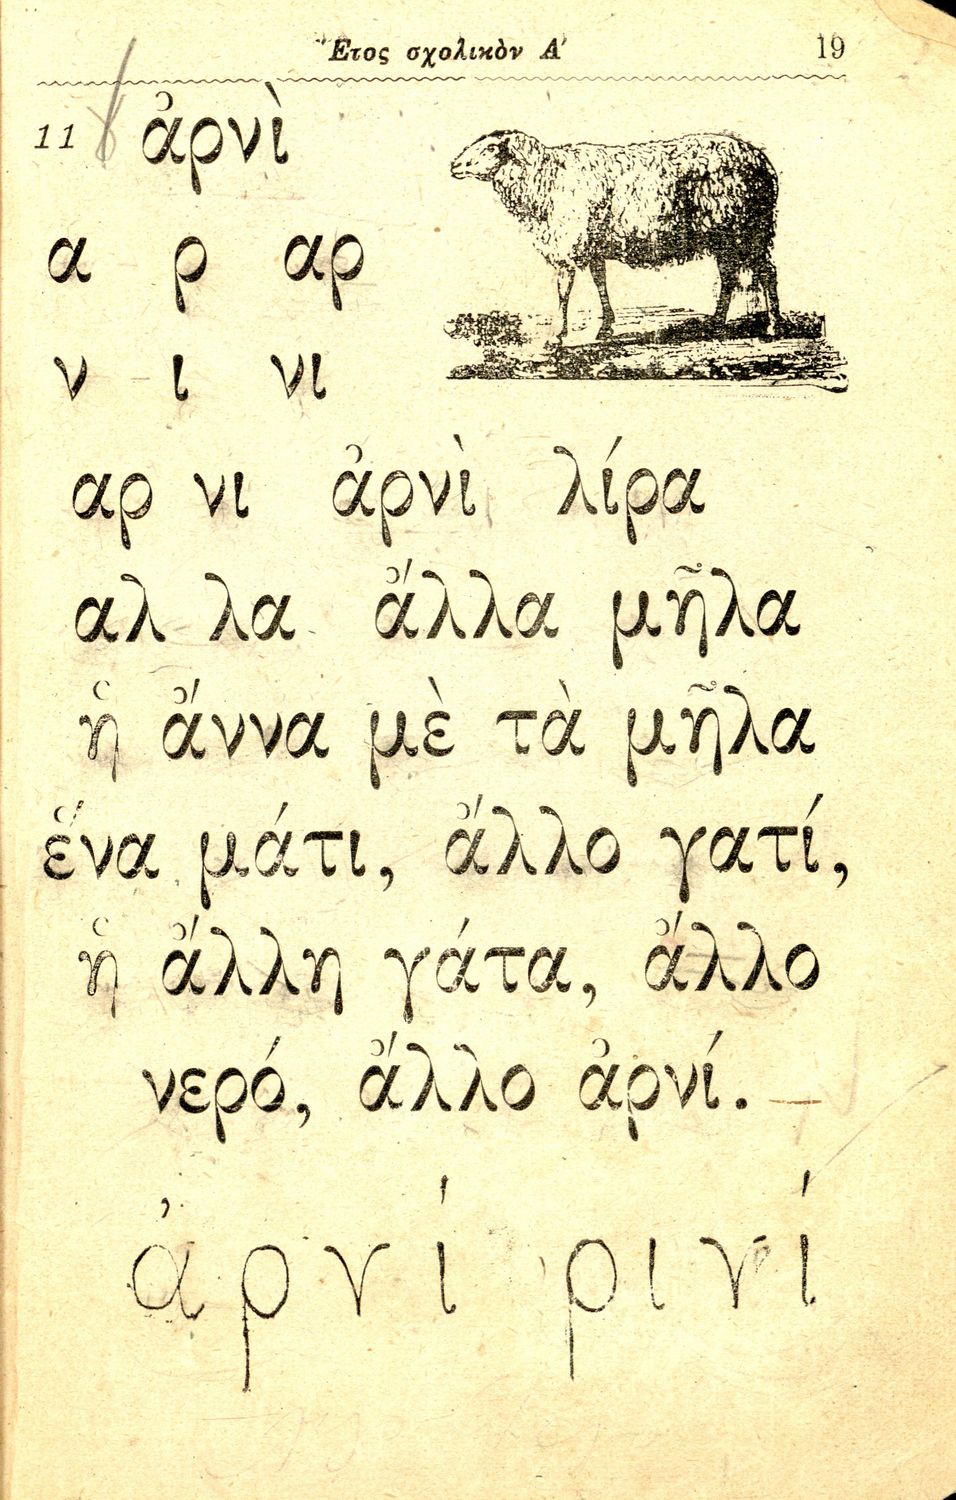 Ἔτος σχολικὸν Α′ 19
11 ἀρνὶ
α ρ αρ
ν ι νι
αρ νι ἀρνὶ λίρα
αλ λα ἄλλα μῆλα
ἡ ἄννα μὲ τὰ μῆλα
ἕνα μάτι, ἄλλο γατί,
ἡ ἄλλη γάτα, ἄλλο
νερό, ἄλλο ἀρνί.
ἀρνί ρινί